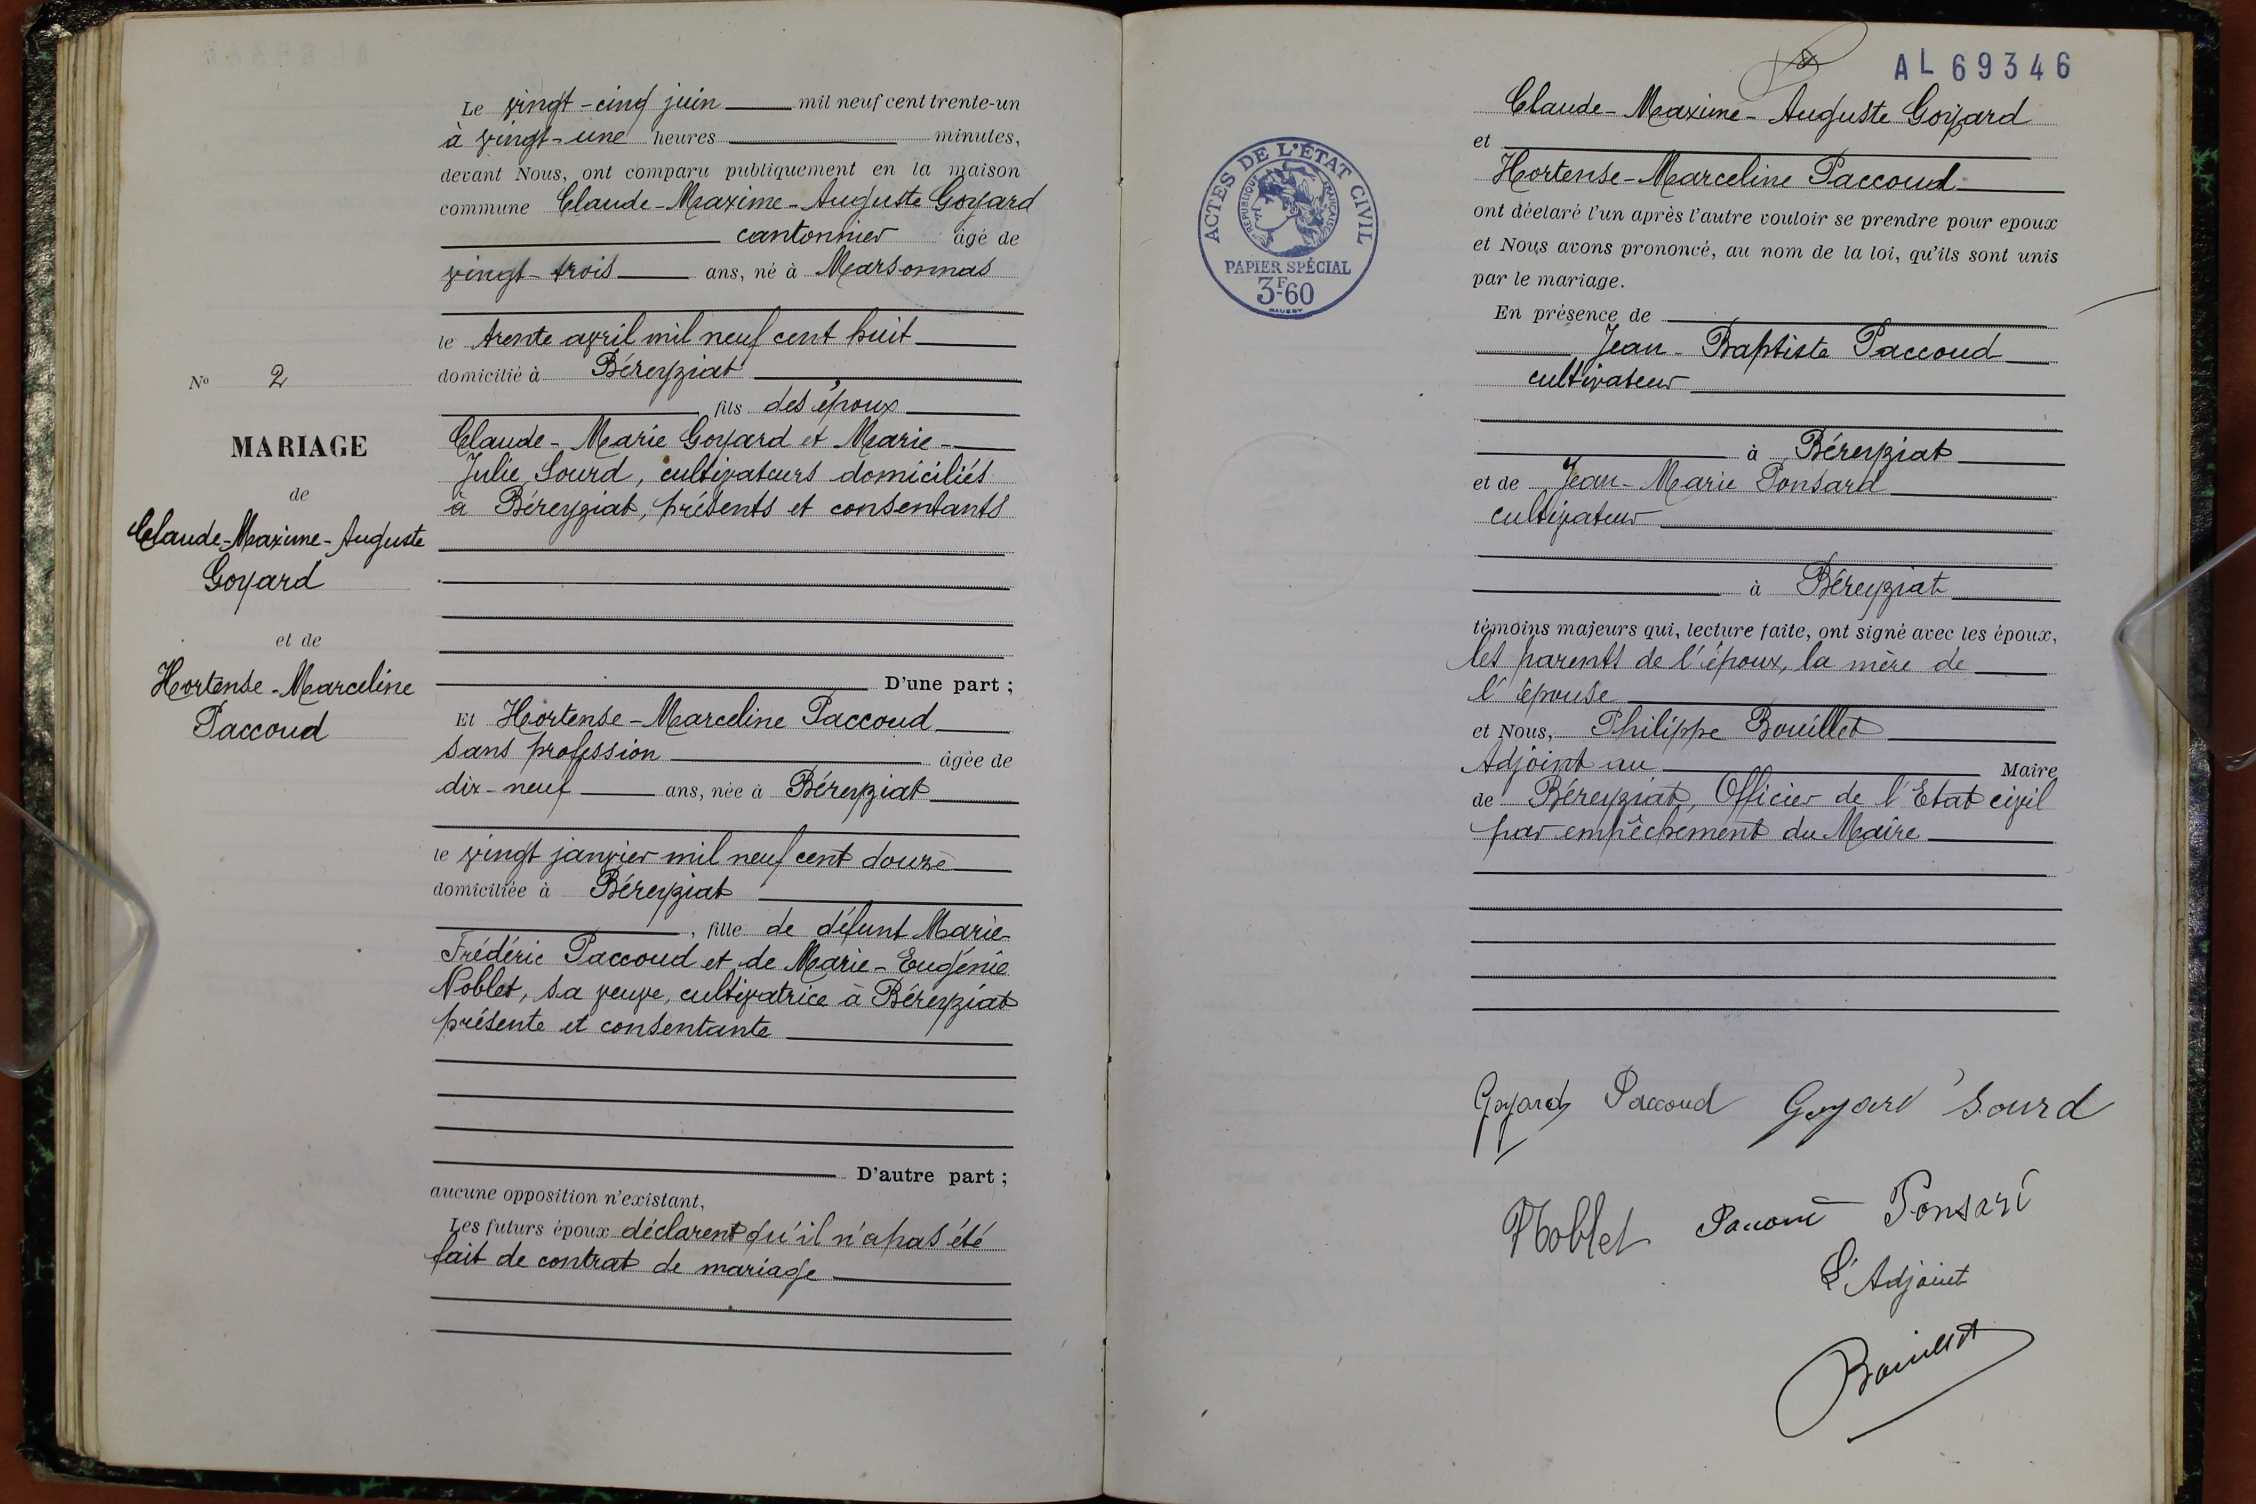 Le vingt-cinq juin mil neuf cent trente-un
à vingt-une heures minutes,
devant Nous, ont comparu publiquement en la maison
commune Claude-Maxime-Auguste Goyard
cantonnier âgé de
vingt-trois ans, né à Marsonnas
le trente avril mil neuf cent huit
domicilié à Béreyziat
fils des époux
Claude-Marie Goyard et Marie-
Julie Sourd, cultivateurs domiciliés
à Béreyziat, présents et consentants
D'une part ;
Et Hortense-Marceline Paccoud
sans profession âgée de
dix-neuf ans, née à Béreyziat
le vingt janvier mil neuf cent douze
domiciliée à Béreyziat
, fille de défunt Marie-
Frédéric Paccoud et de Marie-Eugénie
Noblet, sa veuve, cultivatrice à Béreyziat
présente et consentante
D'autre part ;
aucune opposition n'existant,
Les futurs époux déclarent qu'il n'a pas été
fait de contrat de mariage
No 2
MARIAGE
de
Claude-Maxime-Auguste
Goyard
et de
Hortense-Marceline
Paccoud
AL 69346
ACTES DE L'ÉTAT CIVIL
RÉPUBLIQUE FRANÇAISE
PAPIER SPÉCIAL
3F-60
Claude-Maxime-Auguste Goyard
et
Hortense-Marceline Paccoud
ont déclaré l'un après l'autre vouloir se prendre pour epoux
et Nous avons prononcé, au nom de la loi, qu'ils sont unis
par le mariage.
En présence de
Jean-Baptiste Paccoud
cultivateur
à Béreyziat
et de Jean-Marie Ponsard
cultivateur
à Béreyziat
témoins majeurs qui, lecture faite, ont signé avec les époux,
les parents de l'époux, la mère de
l'épouse
et Nous, Philippe Bouillet
Adjoint au Maire
de Béreyziat, Officier de l'Etat civil
par empêchement du Maire
Goyard Paccoud Goyard Sourd
Noblet Paccoud Ponsard
L'Adjoint
Bouillet